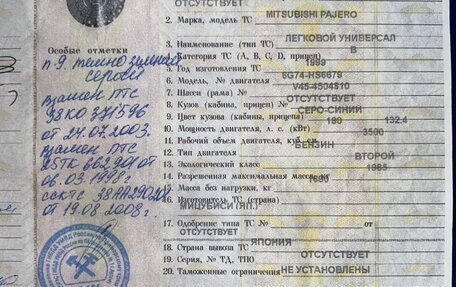 ОТСУТСТВУЕТ
2. Марка, модель ТС
MITSUBISHI PAJERO
3. Наименование (тип ТС)
ЛЕГКОВОЙ УНИВЕРСАЛ
Категория ТС (А, В, С, D, прицеп)
B
5. Год изготовления ТС
1999
6. Модель, № двигателя
6G74-HS6679
7. Шасси (рама) №
V45-4504810
8. Кузов (кабина, прицеп) №
ОТСУТСТВУЕТ
9. Цвет кузова (кабины, прицепа)
СЕРО-СИНИЙ
10. Мощность двигателя, л. с. (кВт)
180
132.4
11. Рабочий объем двигателя, куб. см
3500
12. Тип двигателя
БЕНЗИН
13. Экологический класс
ВТОРОЙ
14. Разрешенная максимальная масса, кг
15. Масса без нагрузки, кг
1985
16. Изготовитель ТС (страна)
МИЦУБИСИ (ЯП.)
17. Одобрение типа ТС №
от
ОТСУТСТВУЕТ
18. Страна вывоза ТС
ЯПОНИЯ
19. Серия, № ТД, ТПО
ОТСУТСТВУЕТ
20. Таможенные ограничения
НЕ УСТАНОВЛЕНЫ
Особые отметки
п 9. темно зеленый
серый
взамен ПТС
38КО 371596
от 24.07.2003.
взамен птс
25ТК 662901 от
06.03.1998г
38АА
от 19.08.2008г.